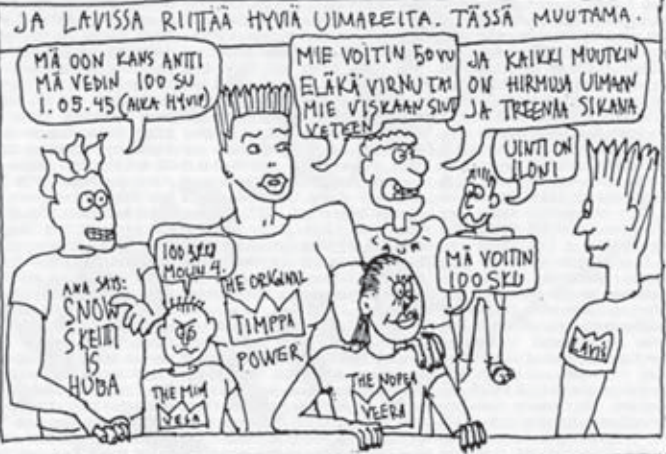 JA LAVISSA RIITTÄÄ HYVIÄ UIMAREITA. TÄSSÄ MUUTAMA.
MÄ OON KANS ANTTI
MÄ VEDIN 100 SU
1.05.45 (AIKA HYVIP)
MIE VOITIN 50VU
ELÄKÄ VIRNU TAI
MIE VISKAAN SIUT
VETEEN
JA KAIKKI MUUTKIN
ON HIRMUJA UIMAAN
JA TREENAA SIKANA
UINTI ON
ILONI
100
MOLIN 4.
MÄ VOITIN
100 SKU
AKA SAYS:
SNOW
SKEITTI
IS
HUBA
THE ORIGINAL
TIMPPA
POWER
LAURI
THE MINI
VESA
THE NOPEA
VEERA
LAVIS